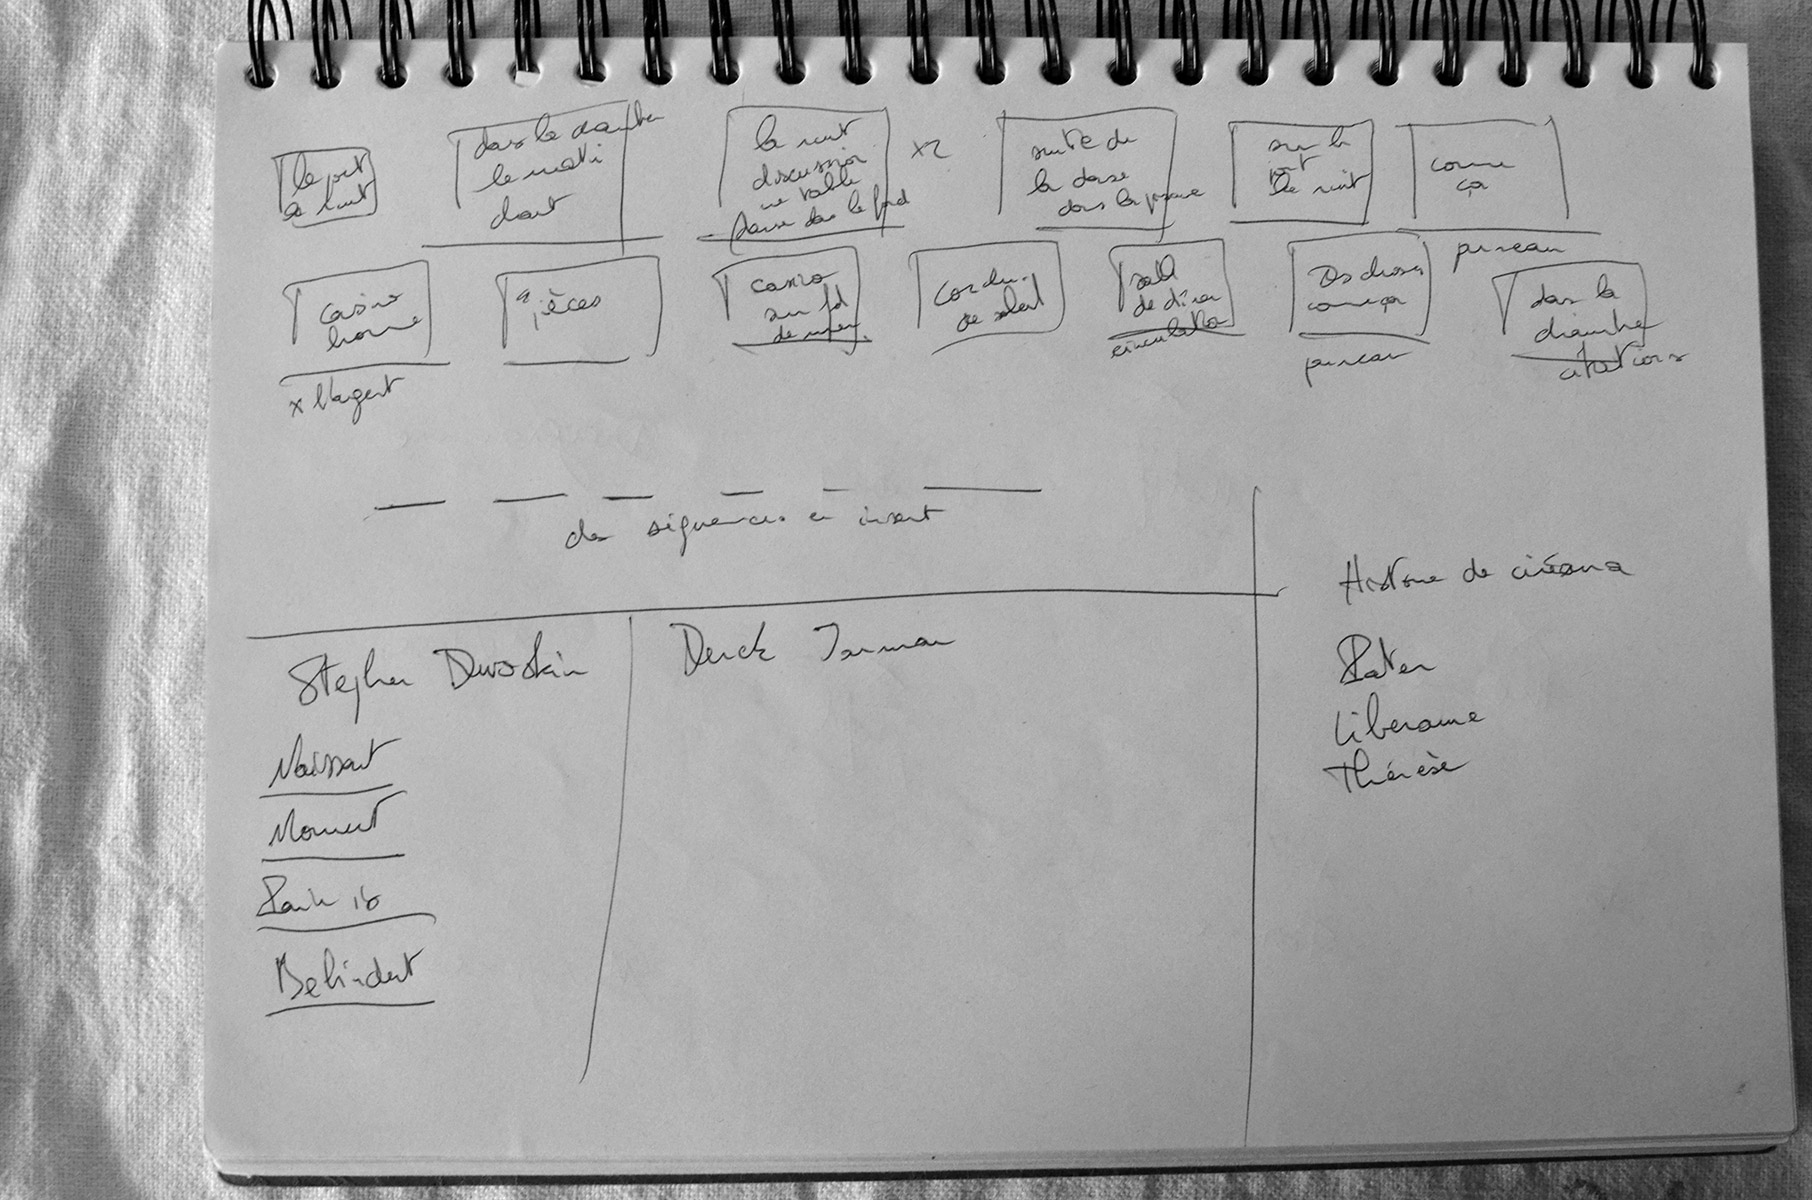 le port
la nuit
dans la chambre
le matin
chant
la nuit
discussion
une table
danse dans le fond
x2
suite de
la danse
dans la
sur le
port
de nuit
comme
ça
pureau
casino
homme
x l'argent
pièces
casino
sur fd
de mer
de soleil
salle
de dîner
circulation
Ds choses
comme ça
pureau
dans la
chambre
citations
des séquences en insert
Histoire de cinéma
Pater
Liberame
Thérèse
Stephen Dwoskin
Naissant
Moment
Pain is
Behindert
Derek Jarman